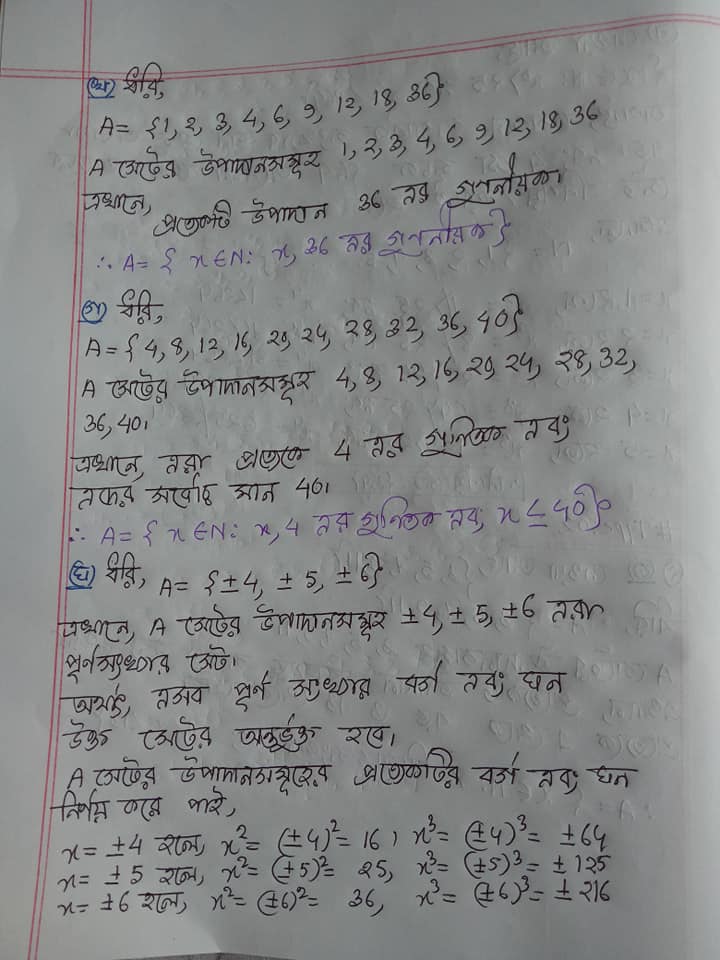 (খ) ধরি,
A = {1, 2, 3, 4, 6, 9, 12, 18, 36}
A সেটের উপাদানসমূহ 1, 2, 3, 4, 6, 9, 12, 18, 36
এখানে,
প্রত্যেকটি উপাদান 36 এর গুণনীয়ক।
∴ A = { x ∈ N: x, 36 এর গুণনীয়ক}
(গ) ধরি,
A = { 4, 8, 12, 16, 20, 24, 28, 32, 36, 40}
A সেটের উপাদানসমূহ 4, 8, 12, 16, 20, 24, 28, 32,
36, 40।
এখানে, এরা প্রত্যেকে 4 এর গুণিতক এবং
এদের সর্বোচ্চ মান 40।
∴ A = { x ∈ N: x, 4 এর গুণিতক এবং x ≤ 40}
(ঘ) ধরি, A = {±4, ±5, ±6}
এখানে, A সেটের উপাদানসমূহ ±4, ±5, ±6 এরা
পূর্ণসংখ্যার সেট।
অর্থাৎ, এসব পূর্ণ সংখ্যার বর্গ এবং ঘন
উক্ত সেটের অন্তর্ভুক্ত হবে।
A সেটের উপাদানসমূহের প্রত্যেকটির বর্গ এবং ঘন
নির্ণয় করে পাই,
x = ±4 হলে, x² = (±4)² = 16, x³ = (±4)³ = ±64
x = ±5 হলে, x² = (±5)² = 25, x³ = (±5)³ = ±125
x = ±6 হলে, x² = (±6)² = 36, x³ = (±6)³ = ±216